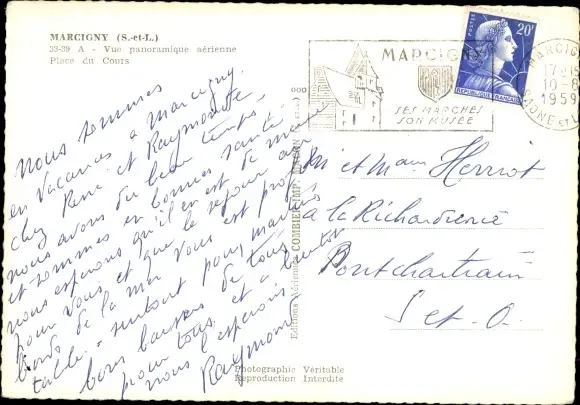 MARCIGNY (S.-et-L.)
33-39 A - Vue panoramique aérienne
Place du Cours
MARCIGNY
SES MARCHES
SON MUSÉE
POSTES
20F
REPUBLIQUE FRANÇAISE
MARCIGNY
17H15
10-8
1959
SAONE ET L.
Nous sommes
en Vacances à Marcigny
chez René et Raymonde
nous avons du beau temps
et sommes en bonnes santé
nous espérons qu'il en est de même
pour vous et que le séjour au
bords de la mer vous est profi
table. surtout pour
bons baisers de tous
pour tous et à bientôt
nous l'espérons
Raymonde
Editions Aériennes COMBIER IMP. MACON
M et Mme Herriot
à la Richarderie
Pontchartrain
S et O.
Photographie Véritable
Reproduction Interdite